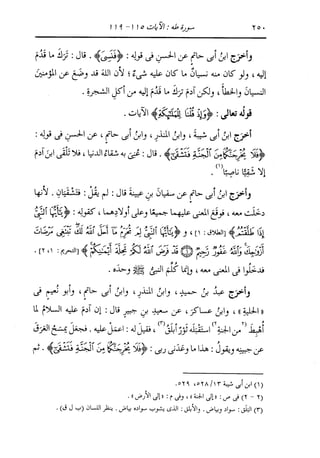 ٢٥٠ سورة طه : الآيات ١١٥ - ١١٩
وأخرج ابنُ أبى حاتمٍ عن الحسنِ فى قولِه : ﴿فَنَسِىَ﴾ . قال : تَرَك ما قُدِّم
إليه ، ولو كان منه نسيانٌ ما كان عليه شىءٌ ؛ لأن اللهَ قد وضَع عن المؤمنين
النسيانَ والخطأَ ، ولكن آدمُ ترَك ما قُدِّم إليه من أكلِ الشجرةِ .
قولُه تعالى : ﴿وَإِذْ قُلْنَا لِلْمَلَٰٓئِكَةِ﴾ الآيات .
أخرَج ابنُ أبى شيبةَ ، وابنُ المنذرِ ، وابنُ أبى حاتمٍ ، عن الحسنِ فى قولِه :
﴿فَلَا يُخْرِجَنَّكُمَا مِنَ ٱلْجَنَّةِ فَتَشْقَىٰٓ﴾ . قال : عُنى به شقاءُ الدنيا ، فلا تَلْقَى ابنَ آدمَ
إلا شقيًّا ناصبًا(١) .
وأخرَج ابنُ أبى حاتمٍ عن سفيانَ بنِ عيينةَ قال : لم يقُلْ : فتَشْقَيان . لأنها
دخَلت معه ، فوقَع المعنى عليهما جميعًا وعلى أولادِهما ، كقولِه : ﴿يَٰٓأَيُّهَا ٱلنَّبِىُّ
إِذَا طَلَّقْتُمُ﴾ [الطلاق : ١] ، و ﴿يَٰٓأَيُّهَا ٱلنَّبِىُّ لِمَ تُحَرِّمُ مَآ أَحَلَّ ٱللَّهُ لَكَ تَبْتَغِى مَرْضَاتَ
أَزْوَٰجِكَ وَٱللَّهُ غَفُورٌ رَّحِيمٌ ۝ قَدْ فَرَضَ ٱللَّهُ لَكُمْ تَحِلَّةَ أَيْمَٰنِكُمْ﴾ [التحريم : ١، ٢] .
فدخَلوا فى المعنى معه ، وإنما كُلِّم النبىُّ ﷺ وحدَه .
وأخرَج عبدُ بنُ حميدٍ ، وابنُ المنذرِ ، وابنُ أبى حاتمٍ ، وأبو نُعيمٍ فى
« الحلية » ، وابنُ عساكرَ ، عن سعيدِ بنِ جبيرٍ قال : إن آدمَ عليه السلامُ لما
أُهبِط (٢من الجنةِ٢) استَقْبَله ثورٌ أبلقُ(٣) ، فقيل له : اعمَلْ عليه . فجعَل يمسَحُ العَرَقَ
عن جبينِه ويقولُ : هذا ما وعَدنى ربى : ﴿فَلَا يُخْرِجَنَّكُمَا مِنَ ٱلْجَنَّةِ فَتَشْقَىٰٓ﴾ . ثم
(١) ابن أبى شيبة ١٣/ ٥٢٨، ٥٢٩.
(٢ - ٢) فى ص : « إلى الجنة » ، وفى م : « إلى الأرض » .
(٣) البَلَق : سواد وبياض . والأبلق : الذى يشوب سواده بياض . ينظر اللسان (ب ل ق) .